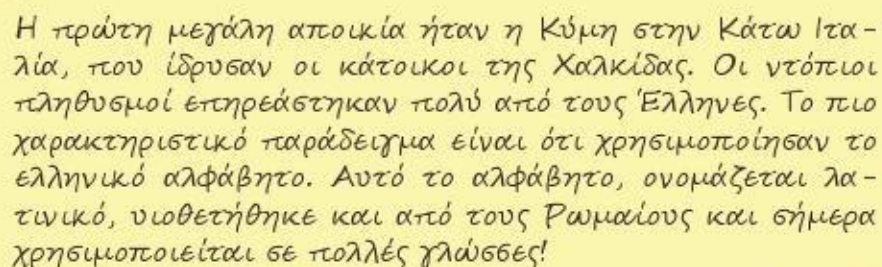 Η πρώτη μεγάλη αποικία ήταν η Κύμη στην Κάτω Ιτα-
λία, που ίδρυσαν οι κάτοικοι της Χαλκίδας. Οι ντόπιοι
πληθυσμοί επηρεάστηκαν πολύ από τους Έλληνες. Το πιο
χαρακτηριστικό παράδειγμα είναι ότι χρησιμοποίησαν το
ελληνικό αλφάβητο. Αυτό το αλφάβητο, ονομάζεται λα-
τινικό, υιοθετήθηκε και από τους Ρωμαίους και σήμερα
χρησιμοποιείται σε πολλές γλώσσες!